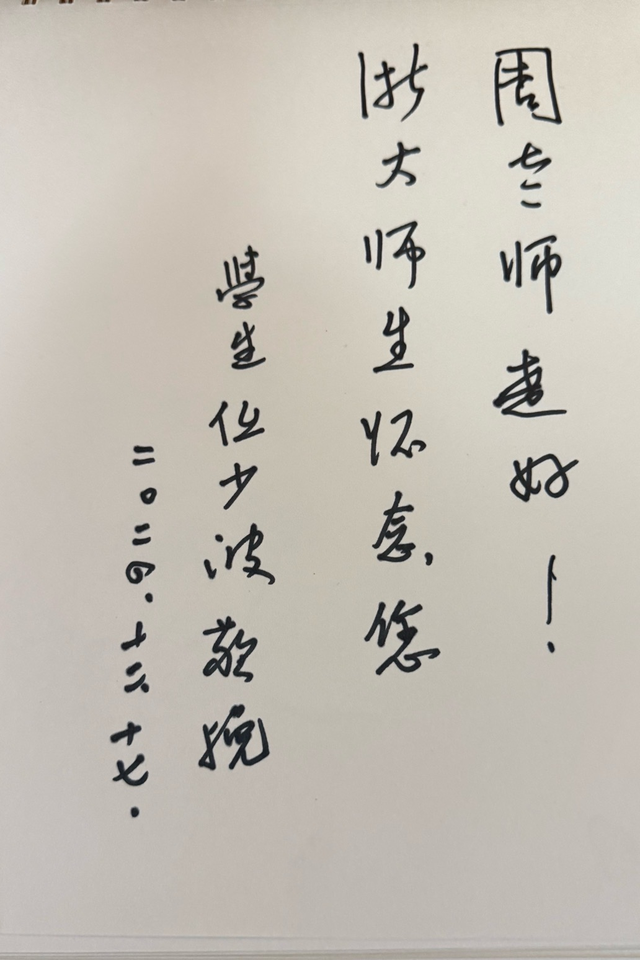 周老师走好！
浙大师生怀念您
學生任少波敬挽
二〇二四.十二.十七.